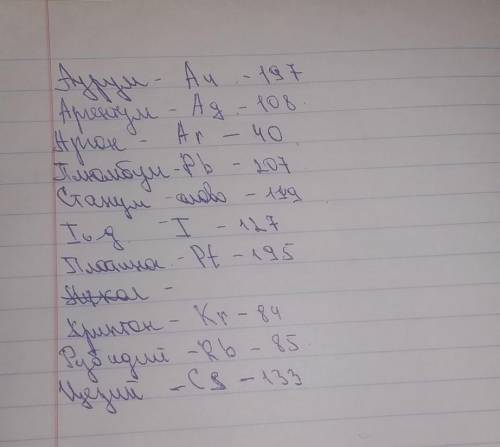 Аурум - Au - 197
Аргентум - Ag - 108
Аргон - Ar - 40
Плюмбум - Pb - 207
Станум - олово - 119
Іод - I - 127
Платина - Pt - 195
Криптон - Kr - 84
Рубидий - Rb - 85
Цезий - Cs - 133